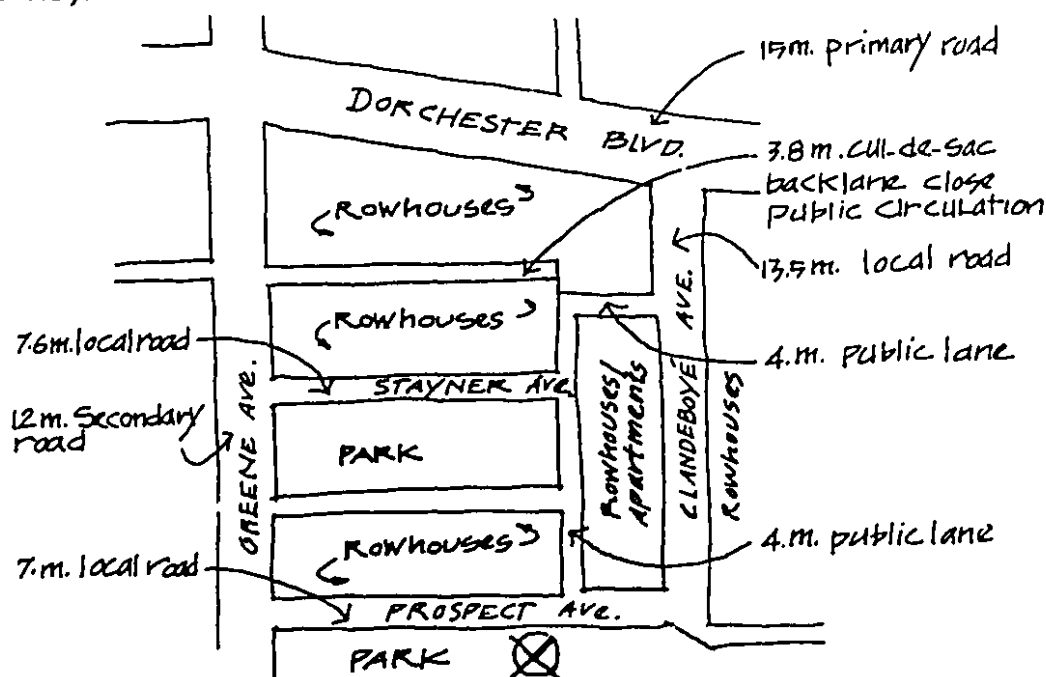 15m. primary road
DORCHESTER BLVD.
3.8m. cul-de-sac
backlane close
public circulation
Rowhouses
13.5m. local road
Rowhouses
7.6m. local road
4.m. public lane
STAYNER AVE.
12m. Secondary
road
GREENE AVE.
PARK
Rowhouses/
Apartments
CLANDEBOYÉ AVE.
Rowhouses
Rowhouses
4.m. public lane
7.m. local road
PROSPECT AVE.
PARK